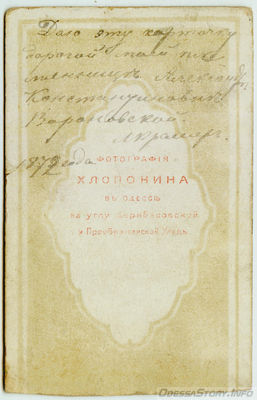 Даю эту карточку
дорогой моей пле
мянницѣ Александрѣ
Константиновнѣ
Вороновской.
1872 года
ФОТОГРАФІЯ
ХЛОПОНИНА
ВЪ ОДЕССѢ
на углу Дерибасовской
и Преображенской Улицъ.
OdessaStory.Info